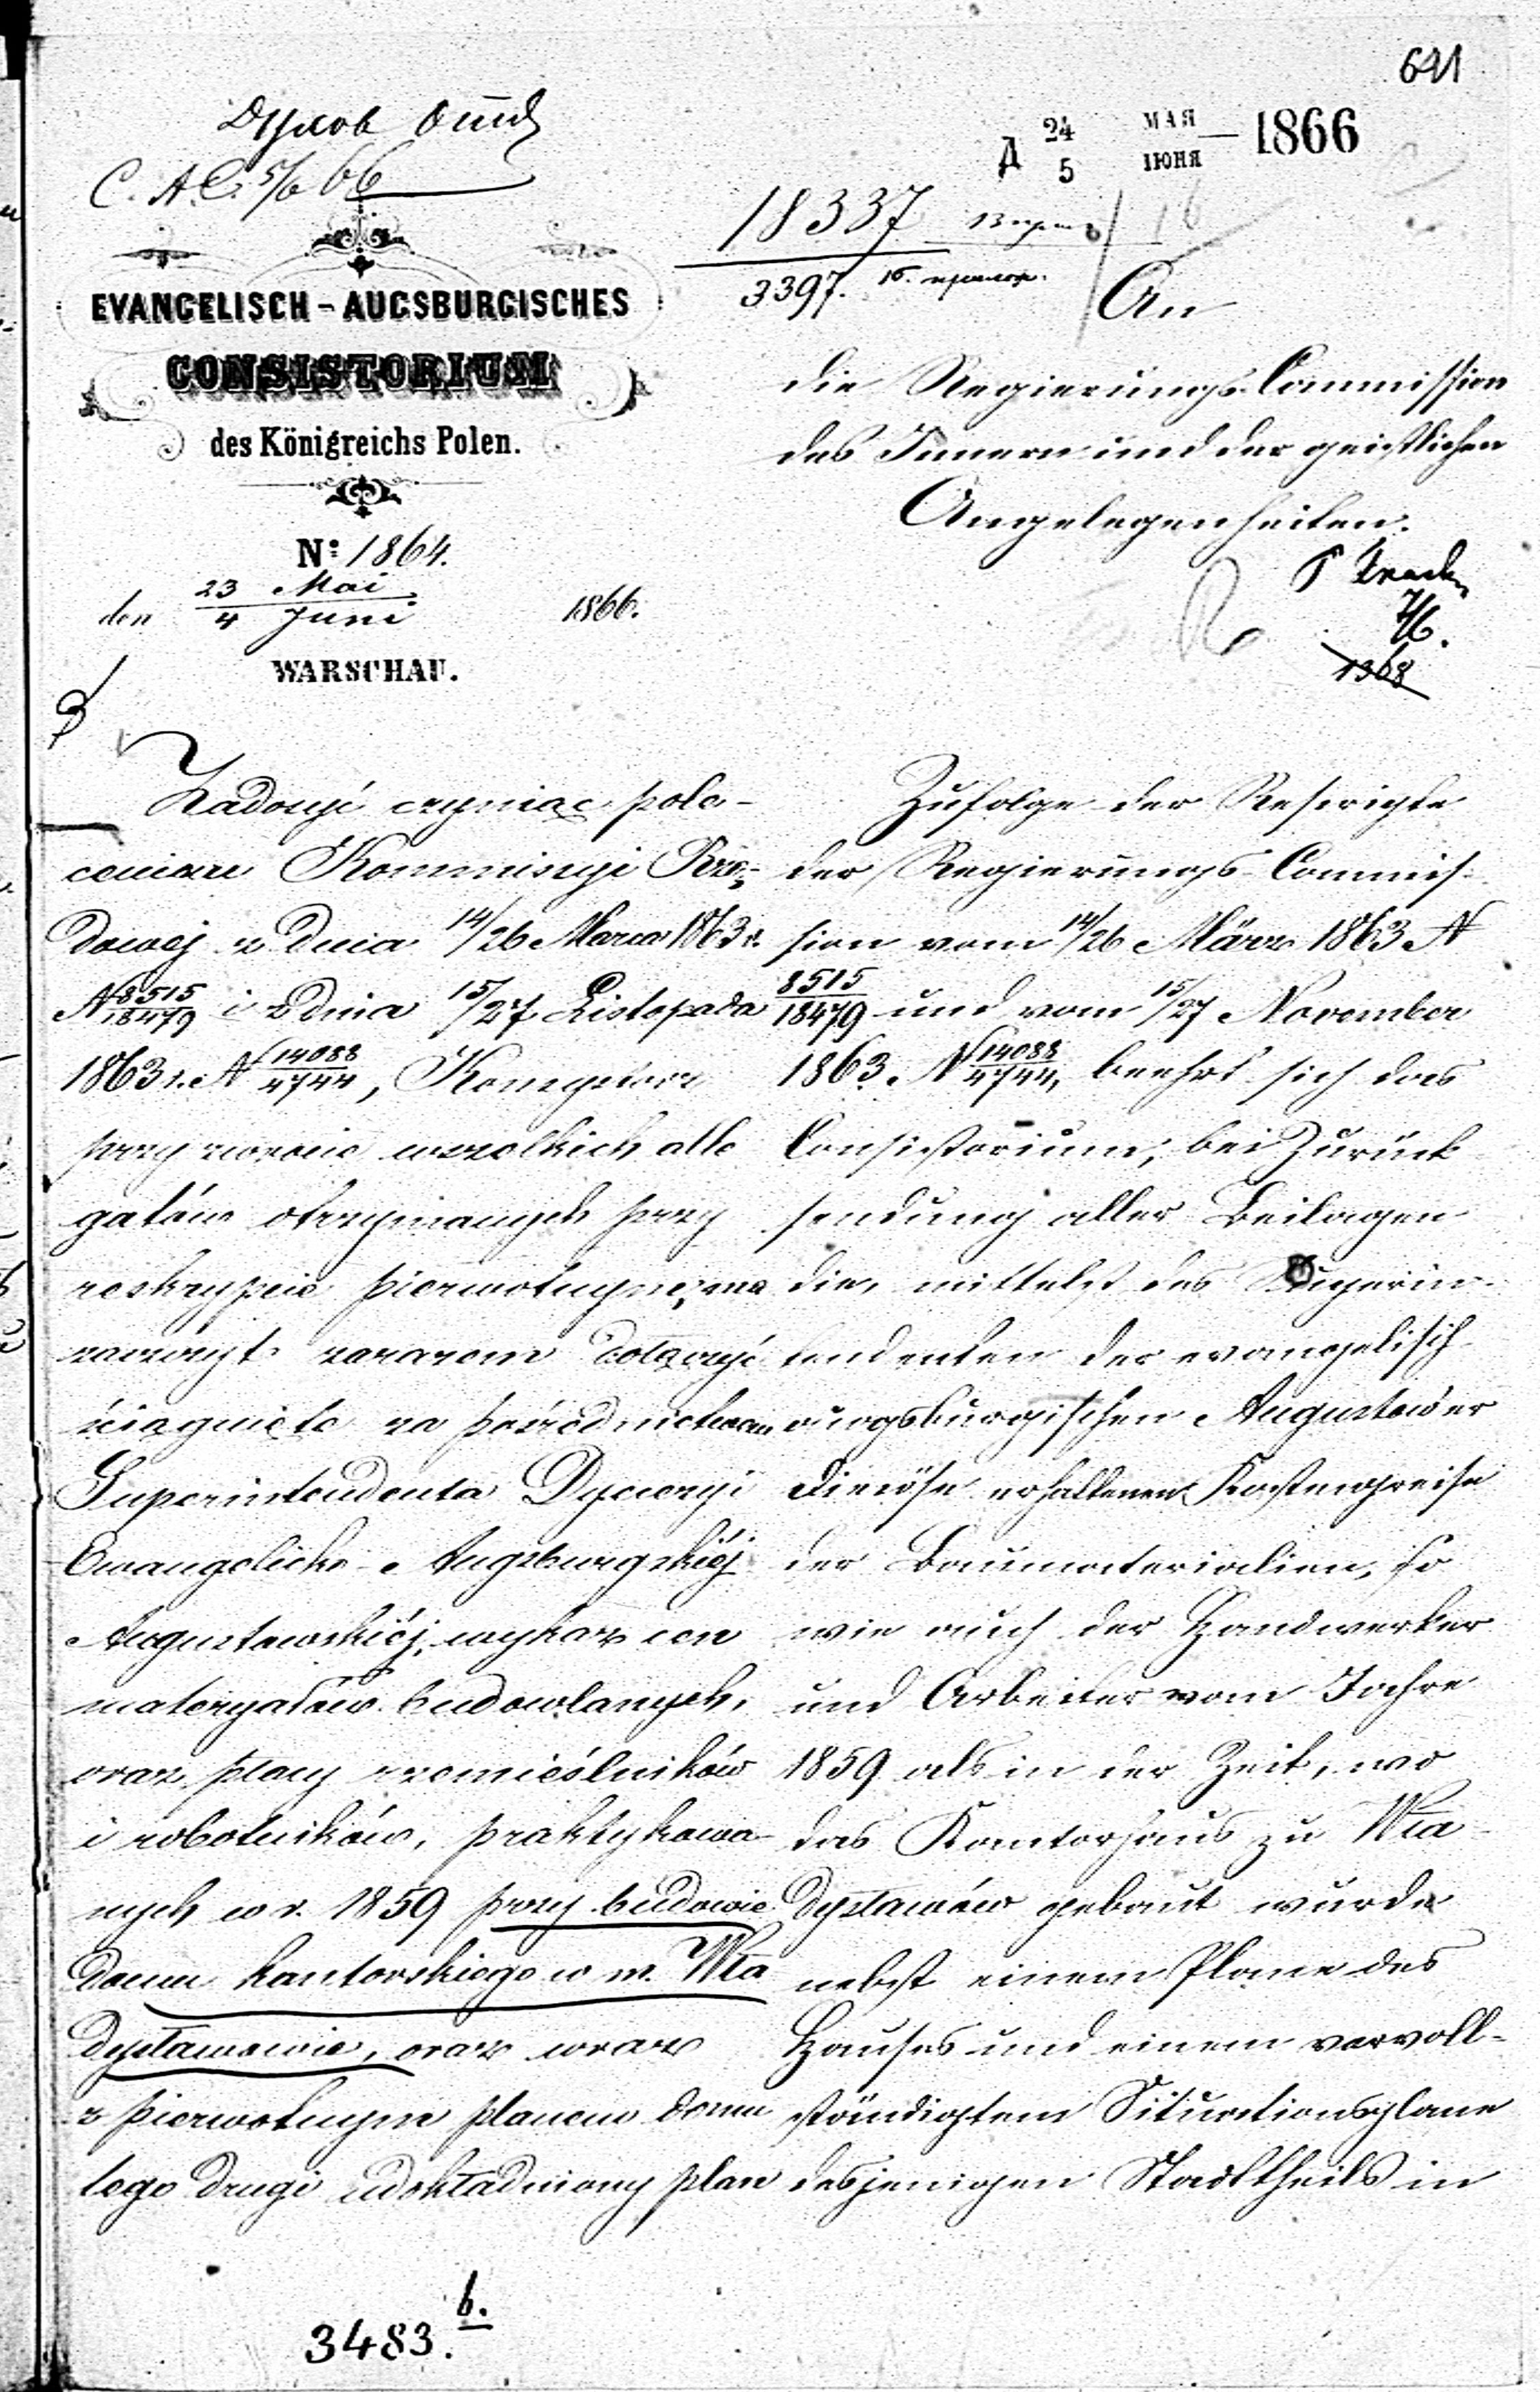 641
Духов Отд
С. А. С. 5/6 66
Д 24/5 МАЯ/ІЮНЯ — 1866
18337
3397. 16. прилож.
EVANGELISCH-AUGSBURGISCHES
CONSISTORIUM
des Königreichs Polen.
An
die Regierungs-Commission
des Innern und der geistlichen
Angelegenheiten.
N: 1864.
den 23 Mai/4 Juni 1866.
WARSCHAU.
7/6.
1368
Zadosyć czyniąc pole-
ceniom Kommissyi Rzą-
dowej z dnia 14/26 Marca 1863 r.
N 8515/18479 i z dnia 15/27 Listopada
1863 r. N 14088/4744, Konsystorz
przy zwrocie wszelkich alle
gatów otrzymanych przy
reskrypcie pierwotnym, ma
zaszczyt zarazem dołączyć
ściągnięte za pośrednictwem
Superintendenta Dyecezyi
Ewangelicko-Augsburgskiéj
Augustowskiéj, wykaz cen
materyałów budowlanych,
oraz płacy rzemieślników
i robotników, praktykowa-
nych w r. 1859 przy budowie
domu kantorskiego w m. Wła
dysławowie, oraz wraz
z pierwotnym planem domu
tego drugi udokładniony plan
Zufolge der Rescripte
der Regierungs-Commis-
sion vom 14/26 März 1863 N
8515/18479 und vom 15/27 November
1863. N 14088/4744, beehrt sich das
Consistorium, bei Zurück
sendung aller Beilagen
die, mittelst des Superin-
tendenten der evangelisch-
augsburgischen Augustower
Diöcöse erhaltenen Kostenpreise
der Baumaterialien, so
wie auch der Handwerker
und Arbeiter vom Jahre
1859 als in der Zeit, wo
das Kantorhaus zu Wła-
dysławów gebaut wurde
nebst einem Plane des
Hauses und einem vervoll-
ständigtem Situationsplane
desjenigen Stadttheils in
3483. b.